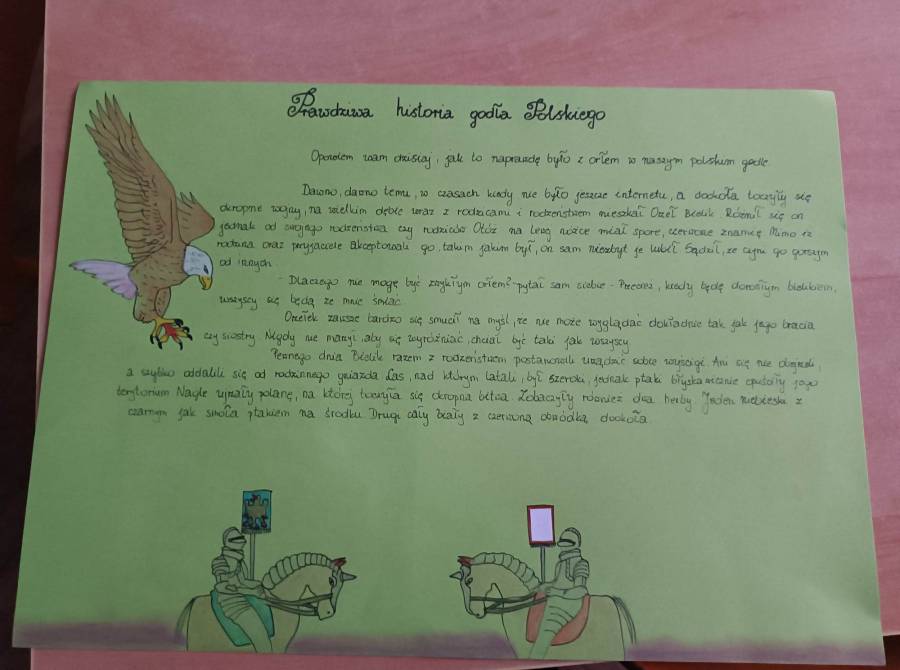 Prawdziwa historia godła Polskiego
Opowiem wam dzisiaj, jak to naprawdę było z orłem w naszym polskim godle.
Dawno, dawno temu, w czasach kiedy nie było jeszcze internetu, a dookoła toczyły się
okropne wojny, na wielkim dębie wraz z rodzicami i rodzeństwem mieszkał Orzeł Bielik. Różnił się on
jednak od swojego rodzeństwa czy rodziców. Otóż na lewej nóżce miał spore, czerwone znamię. Mimo iż
rodzina oraz przyjaciele akceptowali go, takim jakim był, on sam niezbyt je lubił. Sądził, że czyni go gorszym
od innych.
- Dlaczego nie mogę być zwykłym orłem? - pytał sam siebie - Przecież, kiedy będę dorosłym bielikiem,
wszyscy się będą ze mnie śmiać.
Orzełek zawsze bardzo się smucił na myśl, że nie może wyglądać dokładnie tak jak jego bracia
czy siostry. Nigdy nie marzył, aby się wyróżniać, chciał być taki jak wszyscy.
Pewnego dnia Bielik razem z rodzeństwem postanowili urządzić sobie wyścigi. Ani się nie obejrzeli,
a szybko oddalili się od rodzinnego gniazda. Las, nad którym latali, był szeroki, jednak ptaki błyskawicznie opuściły jego
terytorium. Nagle ujrzały polanę, na której toczyła się okropna bitwa. Zobaczyły również dwa herby. Jeden niebieski z
czarnym jak smoła ptakiem na środku. Drugi cały biały z czerwoną obwódką dookoła.